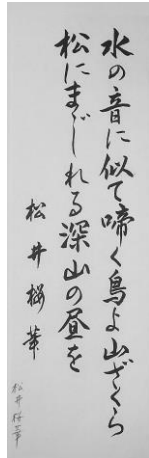 水の音に似て啼く鳥よ山ざくら
松にまじれる深山の昼を
松井桜華
松井桜華